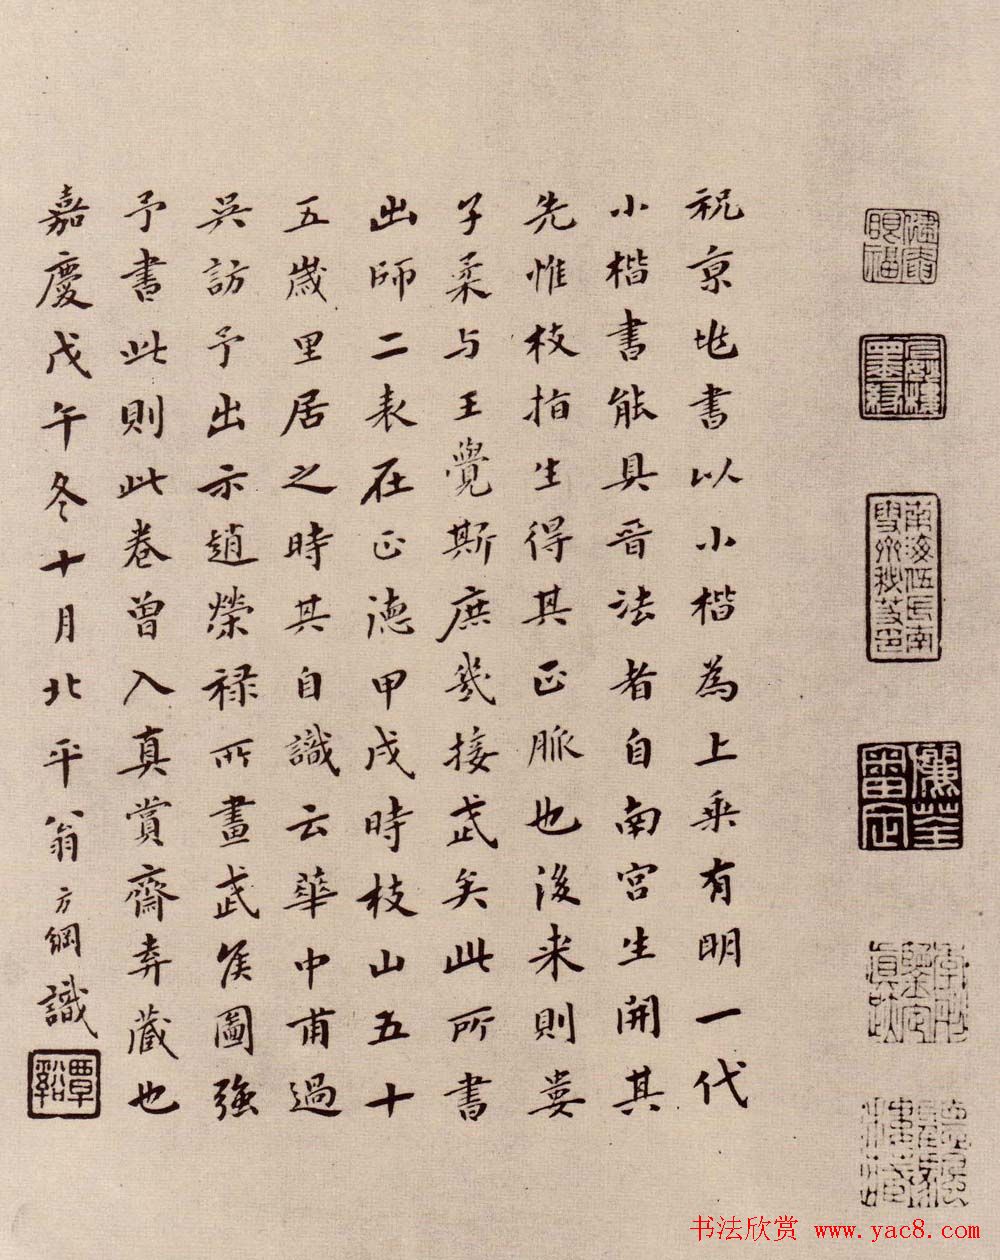 南海伍氏南雪齋秘笈印
儷荃審定
祝京兆書以小楷為上乘有明一代
小楷書能具晉法者自南宮生開其
先惟枝指生得其正脈也後来則婁
子柔与王覺斯庶幾接武矣此所書
出師二表在正德甲戌時枝山五十
五歲里居之時其自識云華中甫過
吳訪予出示趙榮祿所畫武侯圖強
予書此則此卷曾入真賞齋弆藏也
嘉慶戊午冬十月北平翁方綱識
覃谿
书法欣赏 www.yac8.com